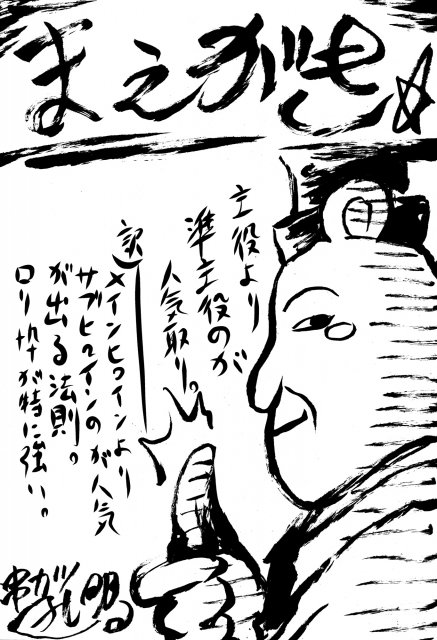 まえがき☆
主役より
準主役のが
人気取り。
訳)メインヒロインより
サブヒロインのが人気
が出る法則。
ロリ
が特に強い。